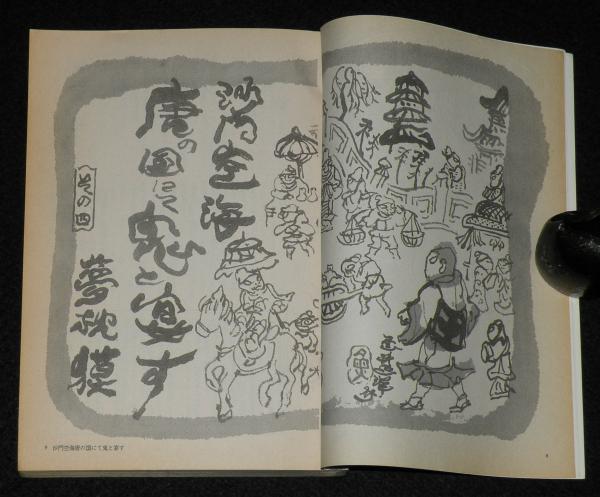 沙門空海
唐の国にて
鬼と宴す
その四
夢枕獏
9 沙門空海唐の国にて鬼と宴す
8